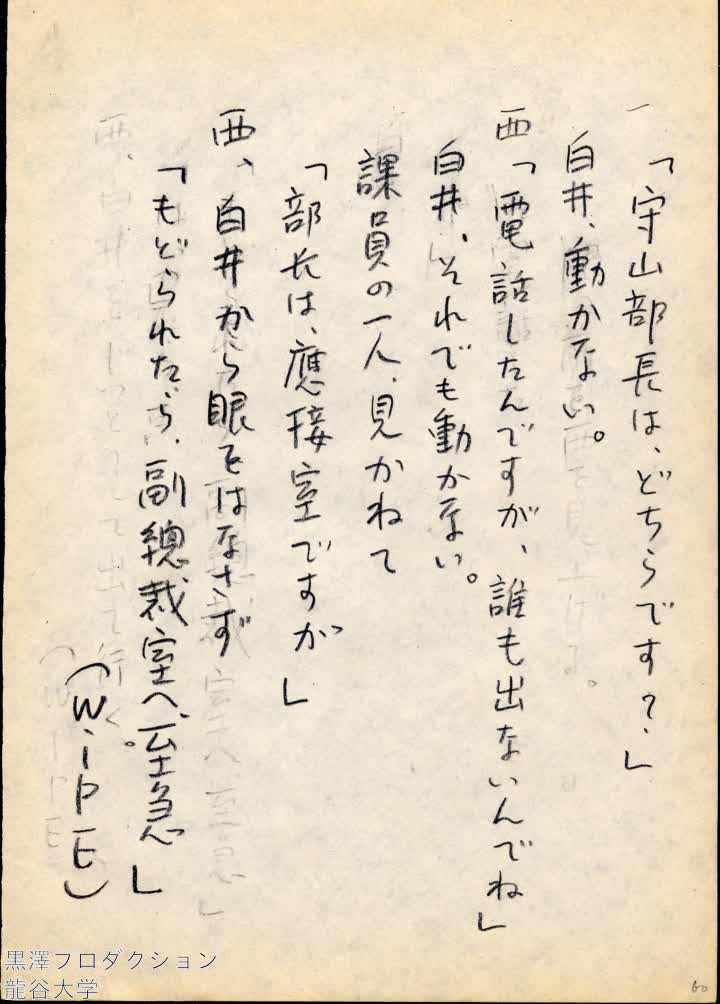 「守山部長は、どちらです？」
白井、動かない。
西「電話したんですが、誰も出ないんでね」
白井、それでも動かない。
課員の一人、見かねて
「部長は、應接室ですが」
西、白井から眼をはなさず
「もどられたら、副總裁室へ、至急」
（WIPE）
60
黒澤プロダクション
龍谷大学